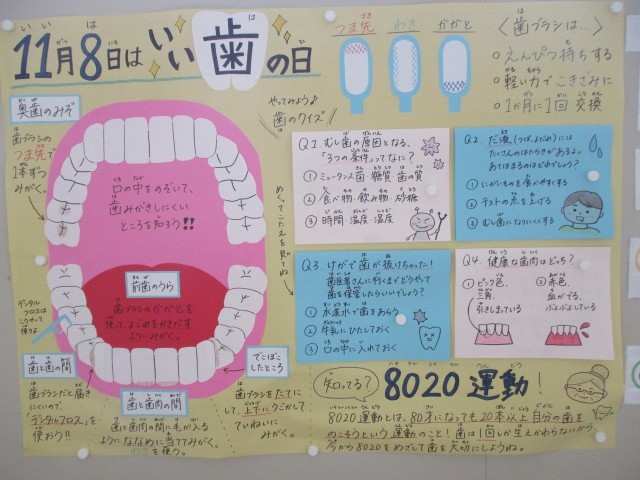 11月8日は いい歯の日
つま先
わき
かかと
〈歯ブラシは…〉
○えんぴつ持ちする
○軽い力でこきざみに
○1か月に1回 交換
奥歯のみぞ
歯ブラシの
つま先で
1本ずつ
みがく。
口の中をのぞいて、
歯みがきしにくい
ところを知ろう!!
前歯のうら
歯ブラシのかかとを
使って、よごれをかきだす
ようにみがく。
デンタル
フロスは
こうやって
使うよ
歯と歯の間
歯ブラシだと届き
にくいので、
「デンタルフロス」を
使おう!!
歯と歯肉の間
歯と歯肉の間に毛が入る
ようにななめに当てみがく。
わきを使う。
でこぼこ
したところ
歯ブラシをたてに
して、上下にうごかして
ていねいに
みがく。
やってみよう♪
歯のクイズ
めくってこたえを見てね
Q1. むし歯の原因となる、
「3つの条件」ってなに?
① ミュータンス菌 糖質 歯の質
② 食べ物 飲み物 砂糖
③ 時間 温度 湿度
Q2. だ液(つば、よだれ)には
たくさんのはたらきがあるよ。
あてはまるのはどれでしょう?
① にがいものを食べやすくする
② テストの点を上げる
③ むし歯になりにくくする
Q3. けがで歯が抜けちゃった!
歯医者さんに行くまでどうやって
歯を保管したらいいでしょう?
① 水道水で歯をあらう
② 牛乳にひたしておく
③ 口の中に入れておく
Q4. 健康な歯肉はどっち?
① ピンク色、
三角、
引きしまっている
② 赤色、
血がでる、
ぶよぶよしている
知ってる?
8020運動!
8020運動とは、80才になっても20本以上自分の歯を
のこそうという運動のこと!歯は1回しか生えかわらないから、
今から8020をめざして歯を大切にしようね。